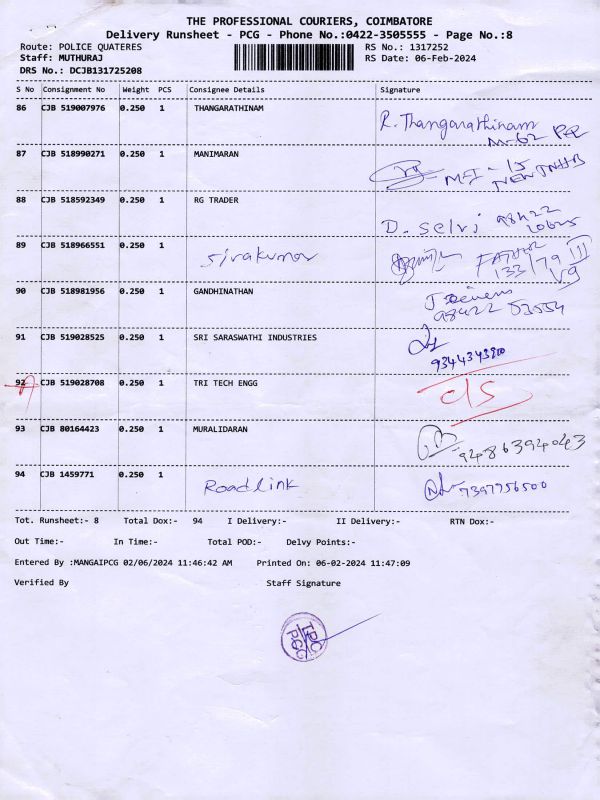 THE PROFESSIONAL COURIERS, COIMBATORE
Delivery Runsheet - PCG - Phone No.:0422-3505555 - Page No.:8
Route: POLICE QUATERES RS No.: 1317252
Staff: MUTHURAJ RS Date: 06-Feb-2024
DRS No.: DCJB131725208
S No Consignment No Weight PCS Consignee Details Signature
86 CJB 519007976 0.250 1 THANGARATHINAM
R. Thangarathinam
M-62
87 CJB 518990271 0.250 1 MANIMARAN
MFI - 15
NEW TNHB
88 CJB 518592349 0.250 1 RG TRADER
D. Selvi 98422
89 CJB 518966551 0.250 1 Sivakumar
FATHER
133/79 III
90 CJB 518981956 0.250 1 GANDHINATHAN
98422 53554
91 CJB 519028525 0.250 1 SRI SARASWATHI INDUSTRIES
92 CJB 519028708 0.250 1 TRI TECH ENGG
c/s
93 CJB 80164423 0.250 1 MURALIDARAN
9486394043
94 CJB 1459771 0.250 1 Roadlink 7397756500
Tot. Runsheet:- 8 Total Dox:- 94 I Delivery:- II Delivery:- RTN Dox:-
Out Time:- In Time:- Total POD:- Delvy Points:-
Entered By :MANGAIPCG 02/06/2024 11:46:42 AM Printed On: 06-02-2024 11:47:09
Verified By Staff Signature
TPC
PCG